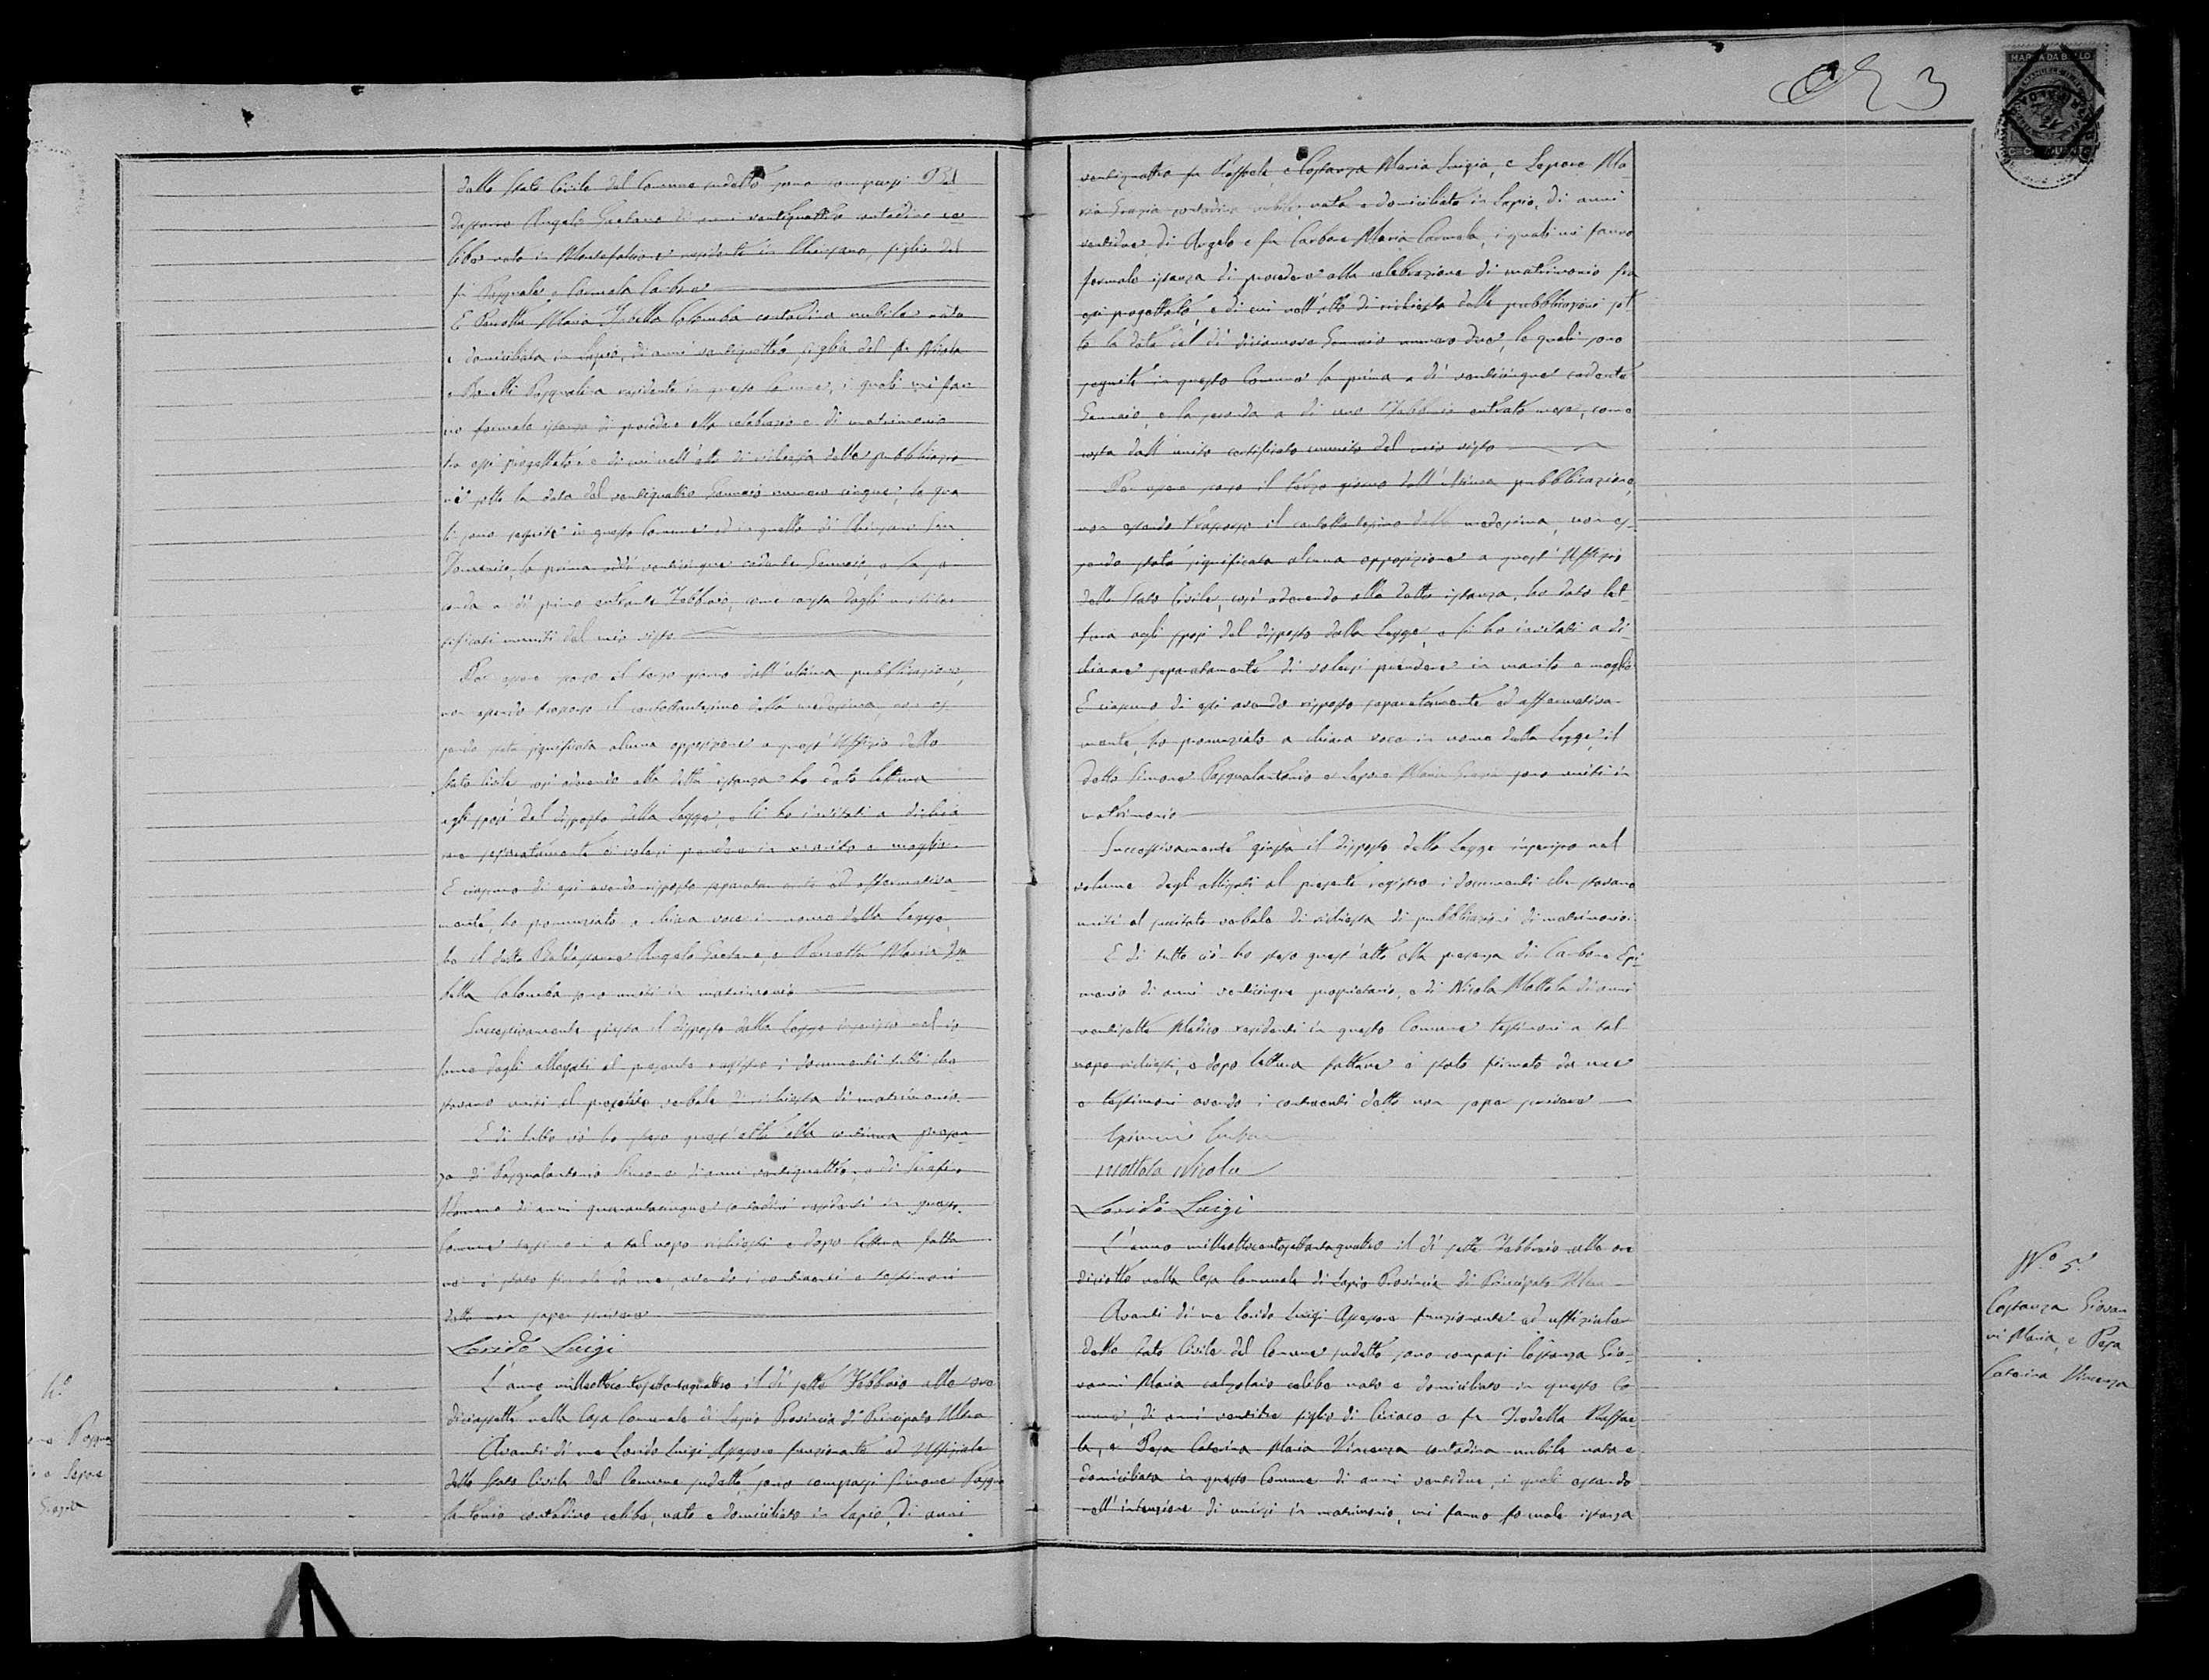 dello Stato Civile del Comune sudetto sono comparsi Bal
dassarre Angelo Gaetano di anni ventiquattro contadino ce
libe nato in Montefalcione residente in Chiusano, figlio del
fu Pasquale e Carmela
E Parrotta Maria Isabella Colomba contadina nubile nata
e domiciliata in Lapio, di anni ventiquattro figlia del fu Nicola
e Pasqualina residente in questo Comune, i quali mi fan
no formale istanza di procedere alla celebrazione di matrimonio
tra essi progettato e di cui nell'atto di richiesta delle pubblicazio
ni sotto la data del ventiquattro Gennaio numero cinque; le qua
li sono seguite in questo Comune ed in quello di Chiusano San
Domenico, la prima addì venticinque cadente Gennaio, e la se
conda a dì primo entrante Febbraio, come costa dagli uniti cer
tificati muniti del mio visto
Per essere scorso il terzo giorno dall'ultima pubblicazione,
non essendo trascorso il centottantesimo dalla medesima, non es
sendo stata significata alcuna opposizione a quest'Uffizio dello
Stato Civile così aderendo alla detta istanza ho dato lettura
agli sposi del disposto della Legge, e li ho invitati a dichia
rare separatamente di volersi prendere in marito e moglie.
E ciascuno di essi avendo risposto separatamente ed affermativa
mente, ho pronunziato a chiara voce in nome della Legge,
che il detto Baldassarre Angelo Gaetano, e Parrotta Maria Isa
bella Colomba sono uniti in matrimonio
Successivamente giusta il disposto della Legge inserisco nel vo
lume degli allegati al presente registro i documenti tutti che
stavano uniti al verbale di richiesta di matrimonio.
E di tutto ciò ho steso quest'atto alla continua presen
za di Pasqualantonio Simone di anni ventiquattro, e di Serafino
Romano di anni quarantacinque contadini residenti in questo
Comune testimoni a tal uopo richiesti e dopo lettura fatta
ne è stato firmato da me, avendo i contraenti e testimoni
detto non saper scrivere
Lorido Luigi
L'anno milleottocentosettantaquattro il dì sette Febbraio alle ore
diciassette nella Casa Comunale di Lapio Provincia di Principato Ultra
Avanti di me Lorido Luigi Assessore funzionante ed Uffiziale
dello Stato Civile del Comune sudetto, sono comparsi Simone Pasqua
lantonio contadino celibe, nato e domiciliato in Lapio, di anni
4.°
Pasqua
e Lepore
Grazia
3
MARCA DA BOLLO
ventiquattro fu Raffaele, e Costanza Maria Luigia, e Lepore Ma
ria Grazia contadina nubile, nata e domiciliata in Lapio, di anni
ventidue, di Angelo e fu Carbone Maria Carmela, i quali mi fanno
formale istanza di procedere alla celebrazione di matrimonio fra
essi progettato, e di cui nell'atto di richiesta delle pubblicazioni sot
to la data del dì diciannove Gennaio numero due, le quali sono
seguite in questo Comune la prima a dì venticinque cadente
Gennaio, e la seconda a dì uno Febbraio entrato mese, come
costa dall'unito certificato munito del mio visto
Per essere scorso il terzo giorno dall'ultima pubblicazione,
non essendo trascorso il centottantesimo dalla medesima, non es
sendo stata significata alcuna opposizione a quest'Uffizio
dello Stato Civile, così aderendo alla detta istanza, ho dato let
tura agli sposi del disposto della Legge, e li ho invitati a di
chiarare separatamente di volersi prendere in marito e moglie
E ciascuno di essi avendo risposto separatamente ed affermativa
mente, ho pronunziato a chiara voce in nome della Legge, il
detto Simone Pasqualantonio e Lepore Maria Grazia sono uniti in
matrimonio
Successivamente giusta il disposto della Legge inserisco nel
volume degli allegati al presente registro i documenti che stavano
uniti al succitato verbale di richiesta di pubblicazioni di matrimonio.
E di tutto ciò ho steso quest'atto alla presenza di Carbone Epi
menio di anni venticinque proprietario, e di Nicola Mottola di anni
ventisette Medico residenti in questo Comune testimoni a tal
uopo richiesti, e dopo lettura fattane è stato firmato da me
e testimoni avendo i contraenti detto non saper scrivere
Mottola Nicola
Lorido Luigi
L'anno milleottocentosettantaquattro il dì sette Febbraio alle ore
diciotto nella Casa Comunale di Lapio Provincia di Principato Ultra
Avanti di me Lorido Luigi Assessore funzionante ed uffiziale
dello Stato Civile del Comune sudetto sono comparsi Costanza Gio
vanni Maria calzolaio celibe nato e domiciliato in questo Co
mune, di anni ventitre figlio di Ciriaco e fu Iodella Raffae
la, e Pesa Caterina Maria Vincenza contadina nubile nata e
domiciliata in questo Comune di anni ventidue, i quali essendo
nell'intenzione di unirsi in matrimonio, mi fanno formale istanza
N.° 5.
Costanza Giovan
ni Maria, e Pesa
Caterina Vincenza